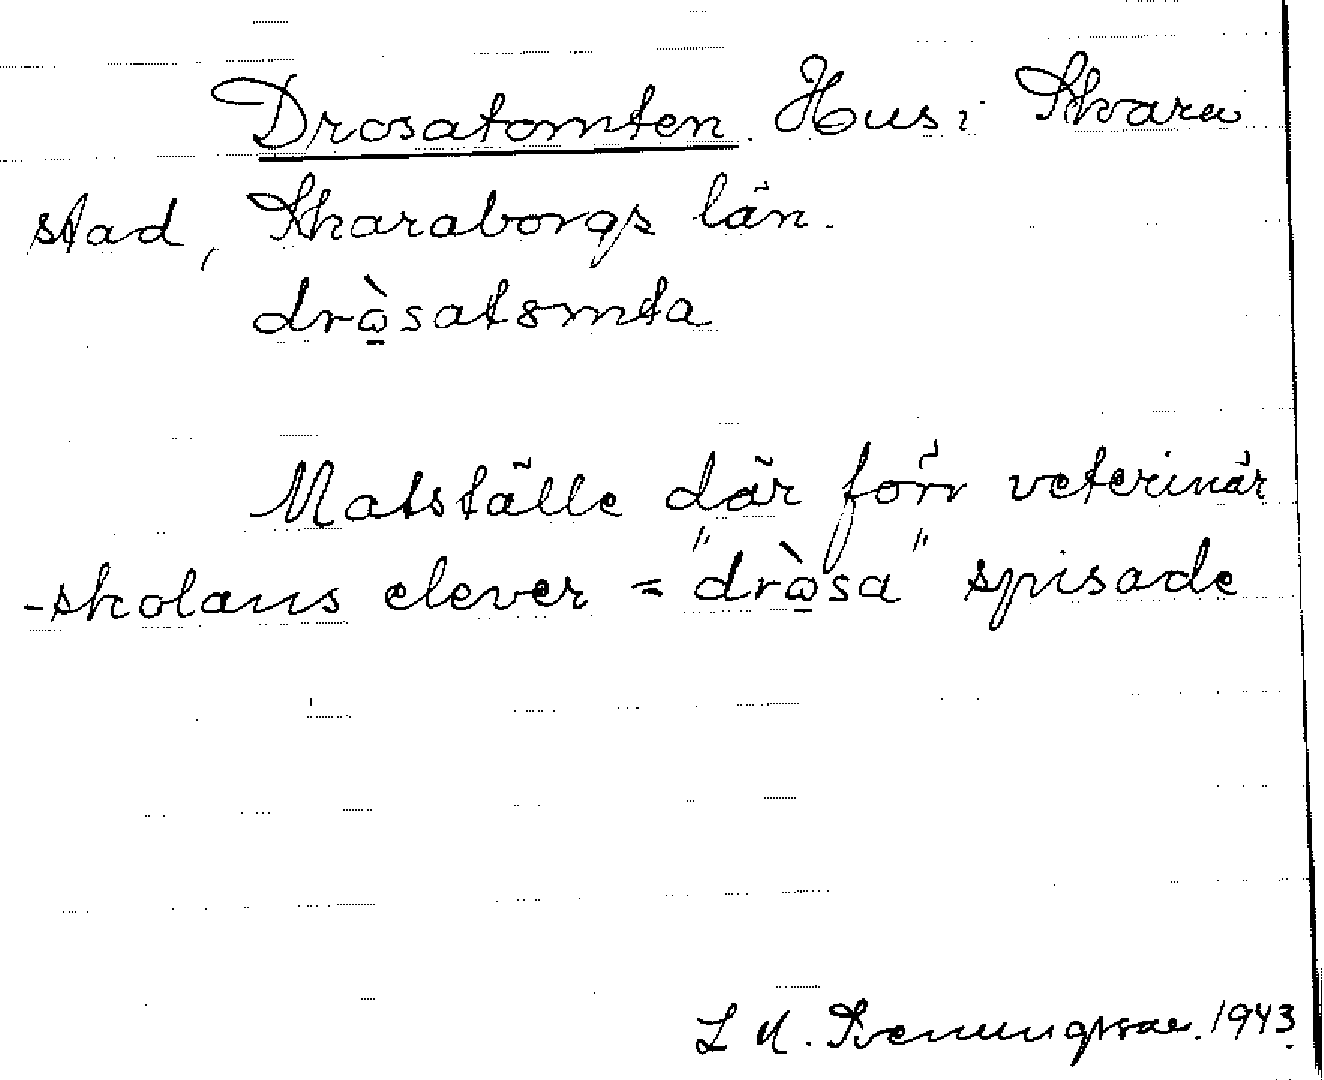 Drosatomten. Hus i Skara
stad, Skaraborgs län.
dròsatomta
Matställe där förr veterinär
-skolans elever = "dròsa" spisade
L M. Svenungsson. 1943.